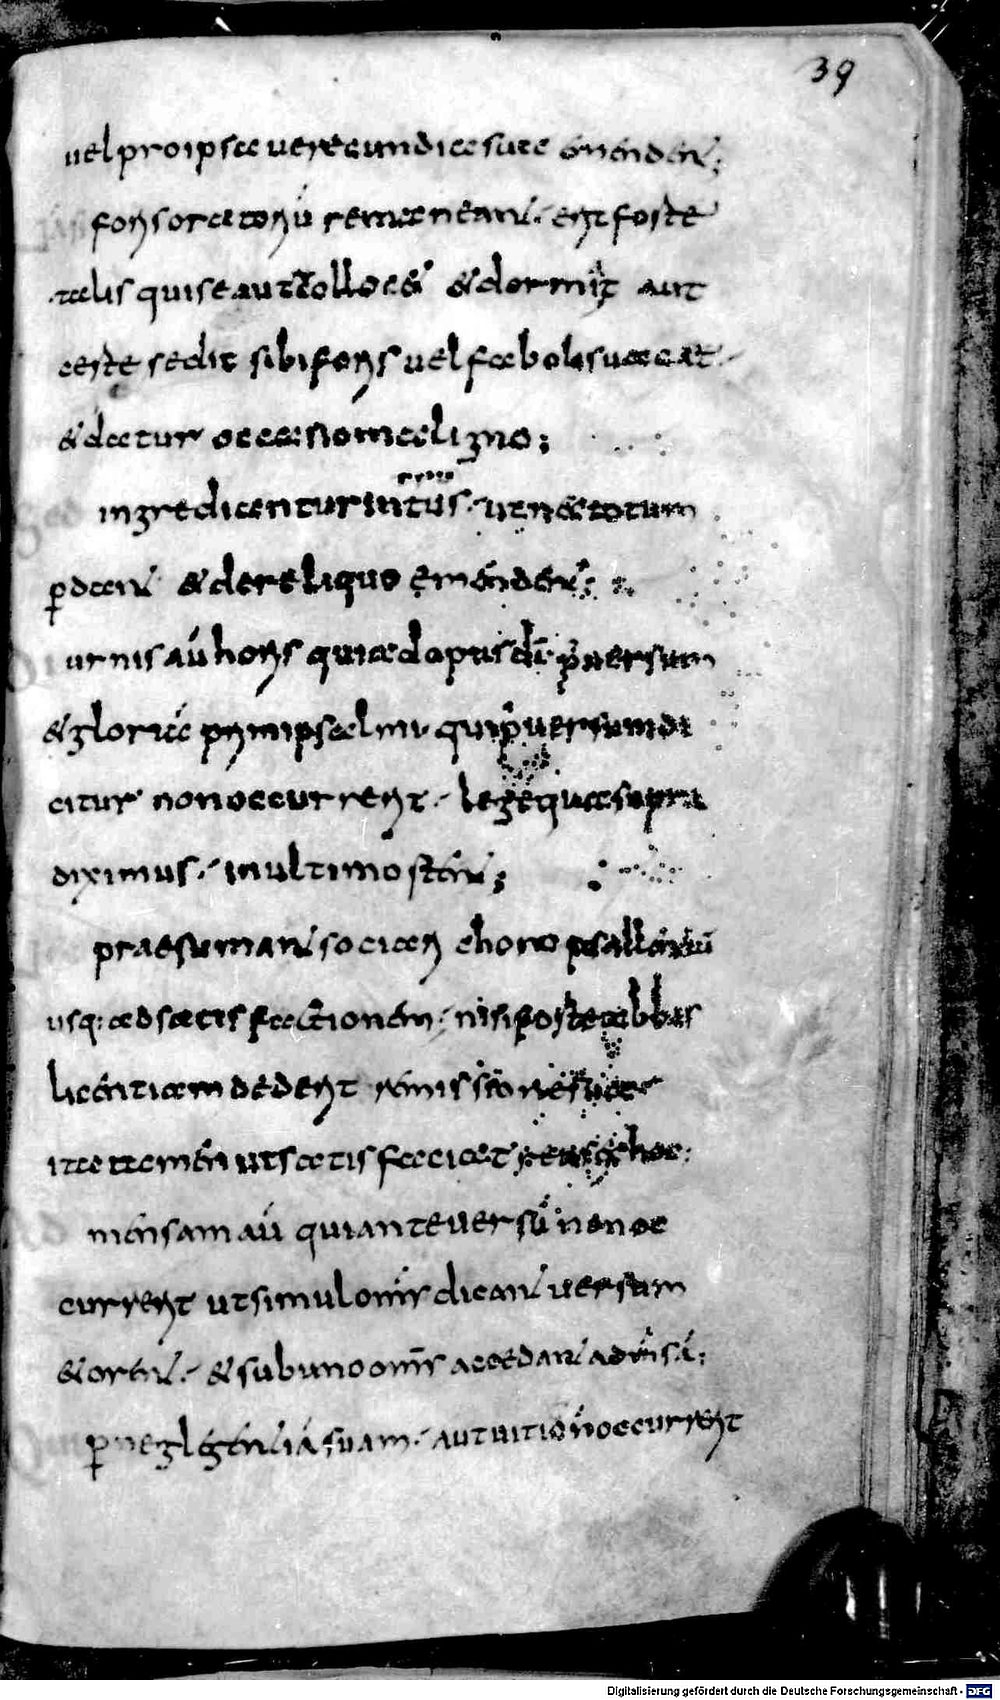 39
uel pro ipsa uerecundia sua emendent;
foris oratoriū remaneant· erit forte
talis qui se aut collocet & dormit aut
certe sedit sibi foris uel fabolis uacat·
& datur occasio maligno;
ingrediantur intus· ut nec totum
ꝑdant & dereliquo emendent;
urnis aū horis qui ad opus dī p uersum
& gloriā primi psalmi qui p uersum di
citur non occurrerit· lege qua supra
diximus· in ultimo stent;
praesumant sociari choro psallentiū
usq; ad satisfactionem· nisi forte abbas
licentiam dederit remissione sua
ita tamen ut satisfaciat reus ex hoc;
mensam aū qui ante uersū non oc
currerit ut simul om̄s dicant uersum
& orent· & sub uno om̄s accedant ad mensā;
ꝑ neglegentiā suam· aut uitio n̄ occurrerit
Digitalisierung gefördert durch die Deutsche Forschungsgemeinschaft - DFG